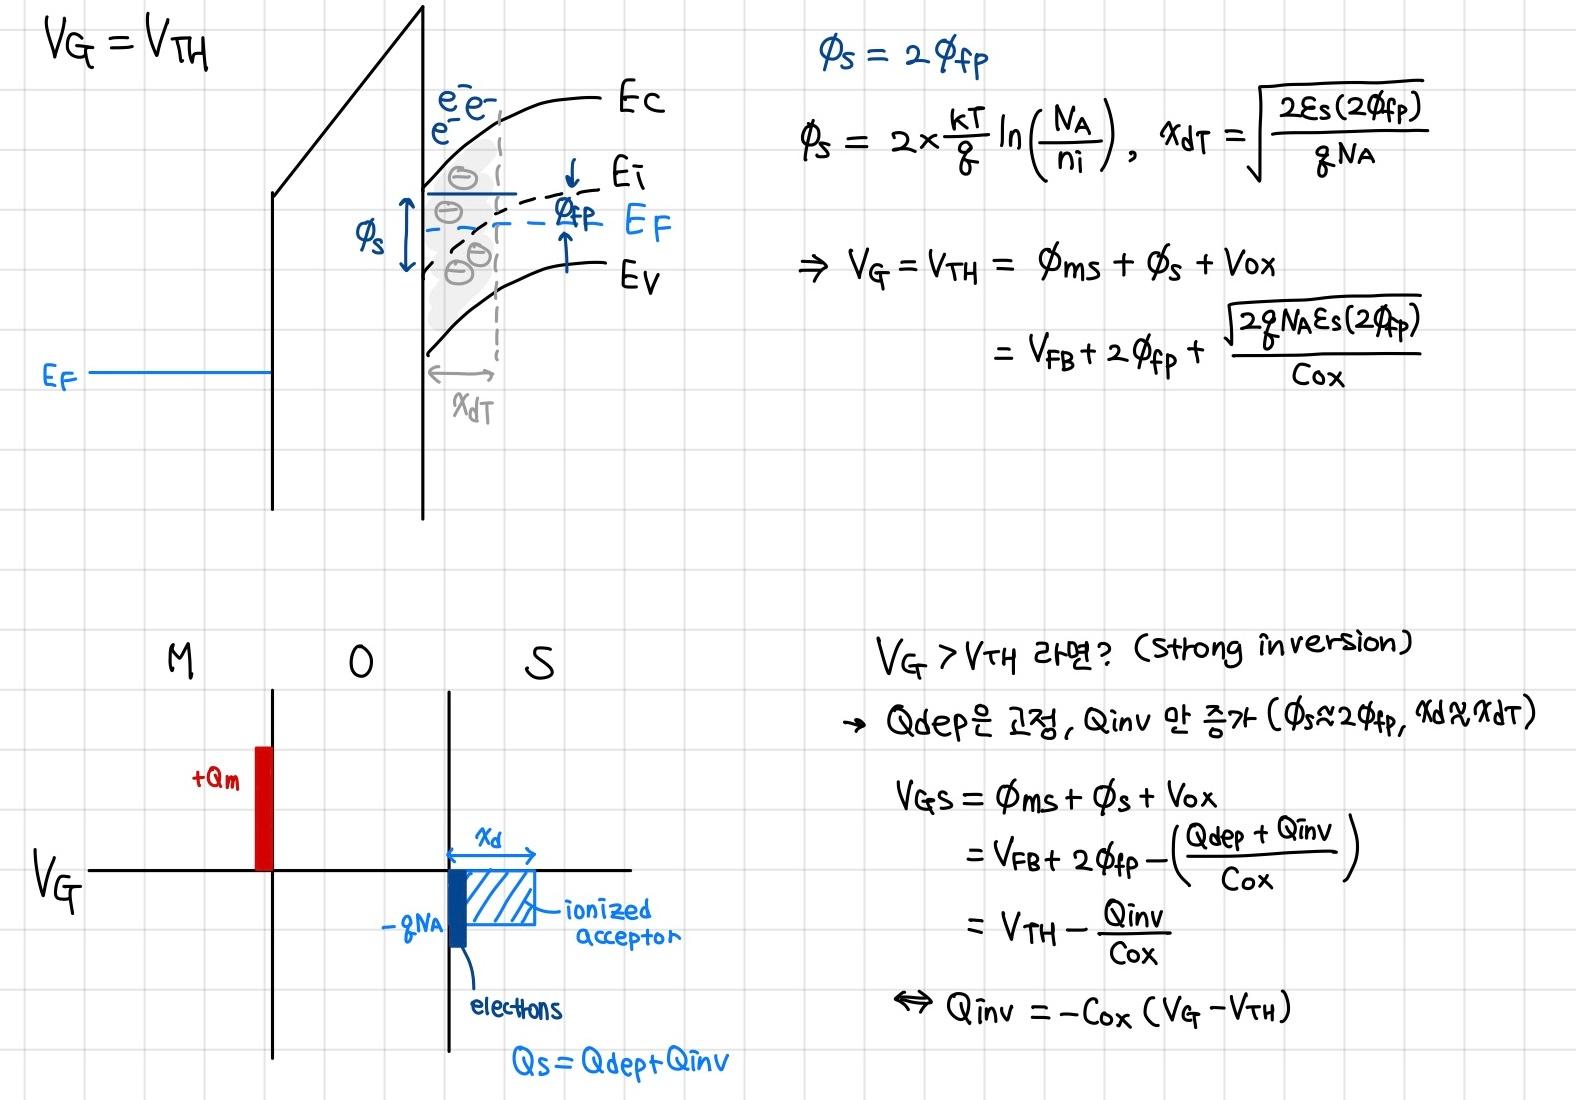 V_G = V_TH
e⁻ e⁻
e⁻
Ec
Ei
ϕ_s
ϕ_fp
E_F
Ev
E_F
x_dT
ϕ_s = 2ϕ_fp
ϕ_s = 2 × kT/q ln(N_A/ni), x_dT = √(2εs(2ϕ_fp)/qN_A)
⇒ V_G = V_TH = ϕms + ϕs + Vox
= V_FB + 2ϕ_fp + √(2qN_Aεs(2ϕ_fp))/Cox
M O S
+Qm
V_G
x_d
-qN_A
ionized
acceptor
electrons
Qs = Qdep + Qinv
V_G > V_TH 라면? (strong inversion)
→ Qdep은 고정, Qinv 만 증가 (ϕs≈2ϕ_fp, xd≈x_dT)
V_GS = ϕms + ϕs + Vox
= V_FB + 2ϕ_fp - ((Qdep + Qinv)/Cox)
= V_TH - Qinv/Cox
⇔ Qinv = -Cox (V_G - V_TH)